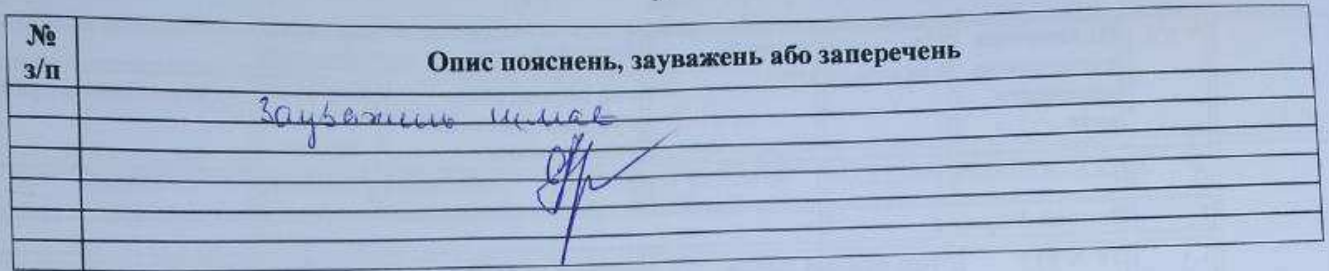 №
з/п
Опис пояснень, зауважень або заперечень
Зауважень немає